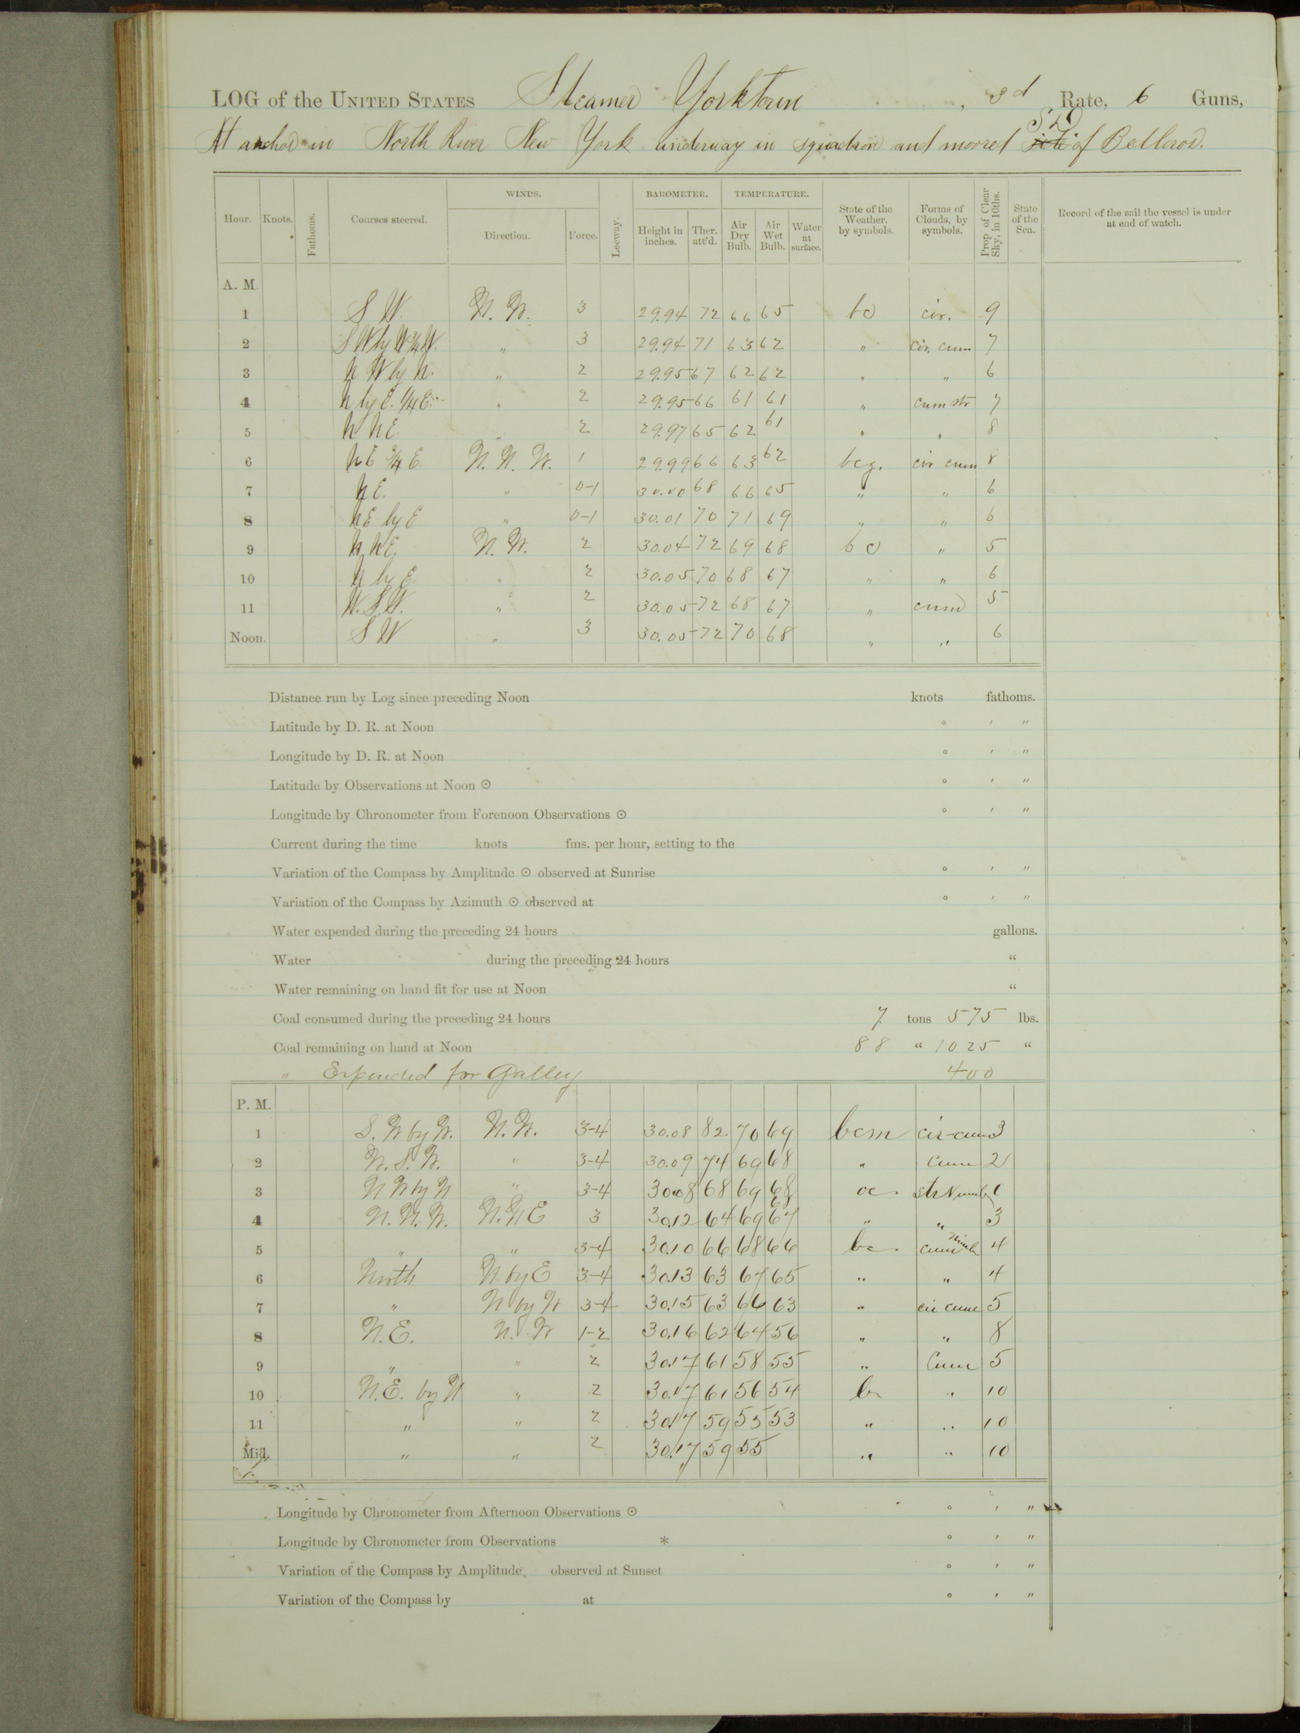 LOG of the UNITED STATES Steamer Yorktown, 3d Rate, 6 Guns,
At anchor in North River New York underway in squadron and moored of Bedloes.
WINDS. BAROMETER. TEMPERATURE.
Hour. Knots. Fathoms. Courses steered. Direction. Force. Leeway. Height in inches. Ther. att'd. Air Dry Bulb. Air Wet Bulb. Water at surface. State of the Weather, by symbols. Forms of Clouds, by symbols. Prop. of Clear Sky, in 10ths. State of the Sea. Record of the sail the vessel is under at end of watch.
A. M.
1 S W. N. W. 3 29.94 72 66 65 bc cir. 9
2 " 3 29.94 71 63 62 " cir. cum 7
3 N W by N. " 2 29.95 67 62 62 " " 6
4 N by E. 1/4 E. " 2 29.95 66 61 61 " cum str 7
5 N N E. 2 29.97 65 62 61 " " 8
6 N E 3/4 E. N. N. W. 1 29.99 66 63 62 bcg. cir cum 8
7 N E. " 0-1 30.00 68 66 65 " " 6
8 N E by E " 0-1 30.01 70 71 69 " " 6
9 N N E. N. W. 2 30.04 72 69 68 b c " 5
10 N by E. " 2 30.05 70 68 67 " " 6
11 W. S. W. " 2 30.05 72 68 67 " cum 5
Noon. S W " 3 30.05 72 70 68 " " 6
Distance run by Log since preceding Noon knots fathoms.
Latitude by D. R. at Noon ° ′ ″
Longitude by D. R. at Noon ° ′ ″
Latitude by Observations at Noon ☉ ° ′ ″
Longitude by Chronometer from Forenoon Observations ☉ ° ′ ″
Current during the time knots fms. per hour, setting to the
Variation of the Compass by Amplitude ☉ observed at Sunrise ° ′ ″
Variation of the Compass by Azimuth ☉ observed at ° ′ ″
Water expended during the preceding 24 hours gallons.
Water during the preceding 24 hours "
Water remaining on hand fit for use at Noon "
Coal consumed during the preceding 24 hours 7 tons 575 lbs.
Coal remaining on hand at Noon 88 " 1025 "
" Expended for Galley 400
P. M.
1 S. W by W. N. W. 3-4 30.08 82 70 69 bcm cir-cum 3
2 W. S. W. " 3-4 30.09 74 69 68 " cum 2
3 N W by N " 3-4 30.08 68 69 68 oc. 1
4 N. N. W. N. N E 3 30.12 64 69 67 " " 3
5 " " 3-4 30.10 66 68 66 bc. cum nimb 4
6 North N. by E 3-4 30.13 63 67 65 " " 4
7 " N by W 3-4 30.15 63 66 63 " cir cum 5
8 N. E. N. W 1-2 30.16 62 64 56 " " 8
9 " " 2 30.17 61 58 55 " Cum 5
10 N. E. by N " 2 30.17 61 56 54 " 10
11 " " 2 30.17 59 55 53 " " 10
Mid. " " 2 30.17 59 55 " " 10
Longitude by Chronometer from Afternoon Observations ☉ ° ′ ″
Longitude by Chronometer from Observations * ° ′ ″
Variation of the Compass by Amplitude, observed at Sunset ° ′ ″
Variation of the Compass by at ° ′ ″